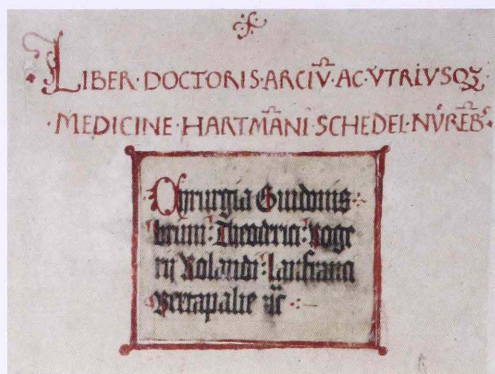 LIBER·DOCTORIS·ARCIṼ·AC·VTRIVSQꝪ
·MEDICINE·HARTMÃNI·SCHEDEL·NṼREB̃·
Chirurgia Guidonis
bruni: Theodrici: Roge
rij Rolandi: Lanfranci
Bertapalie ⁊c̃